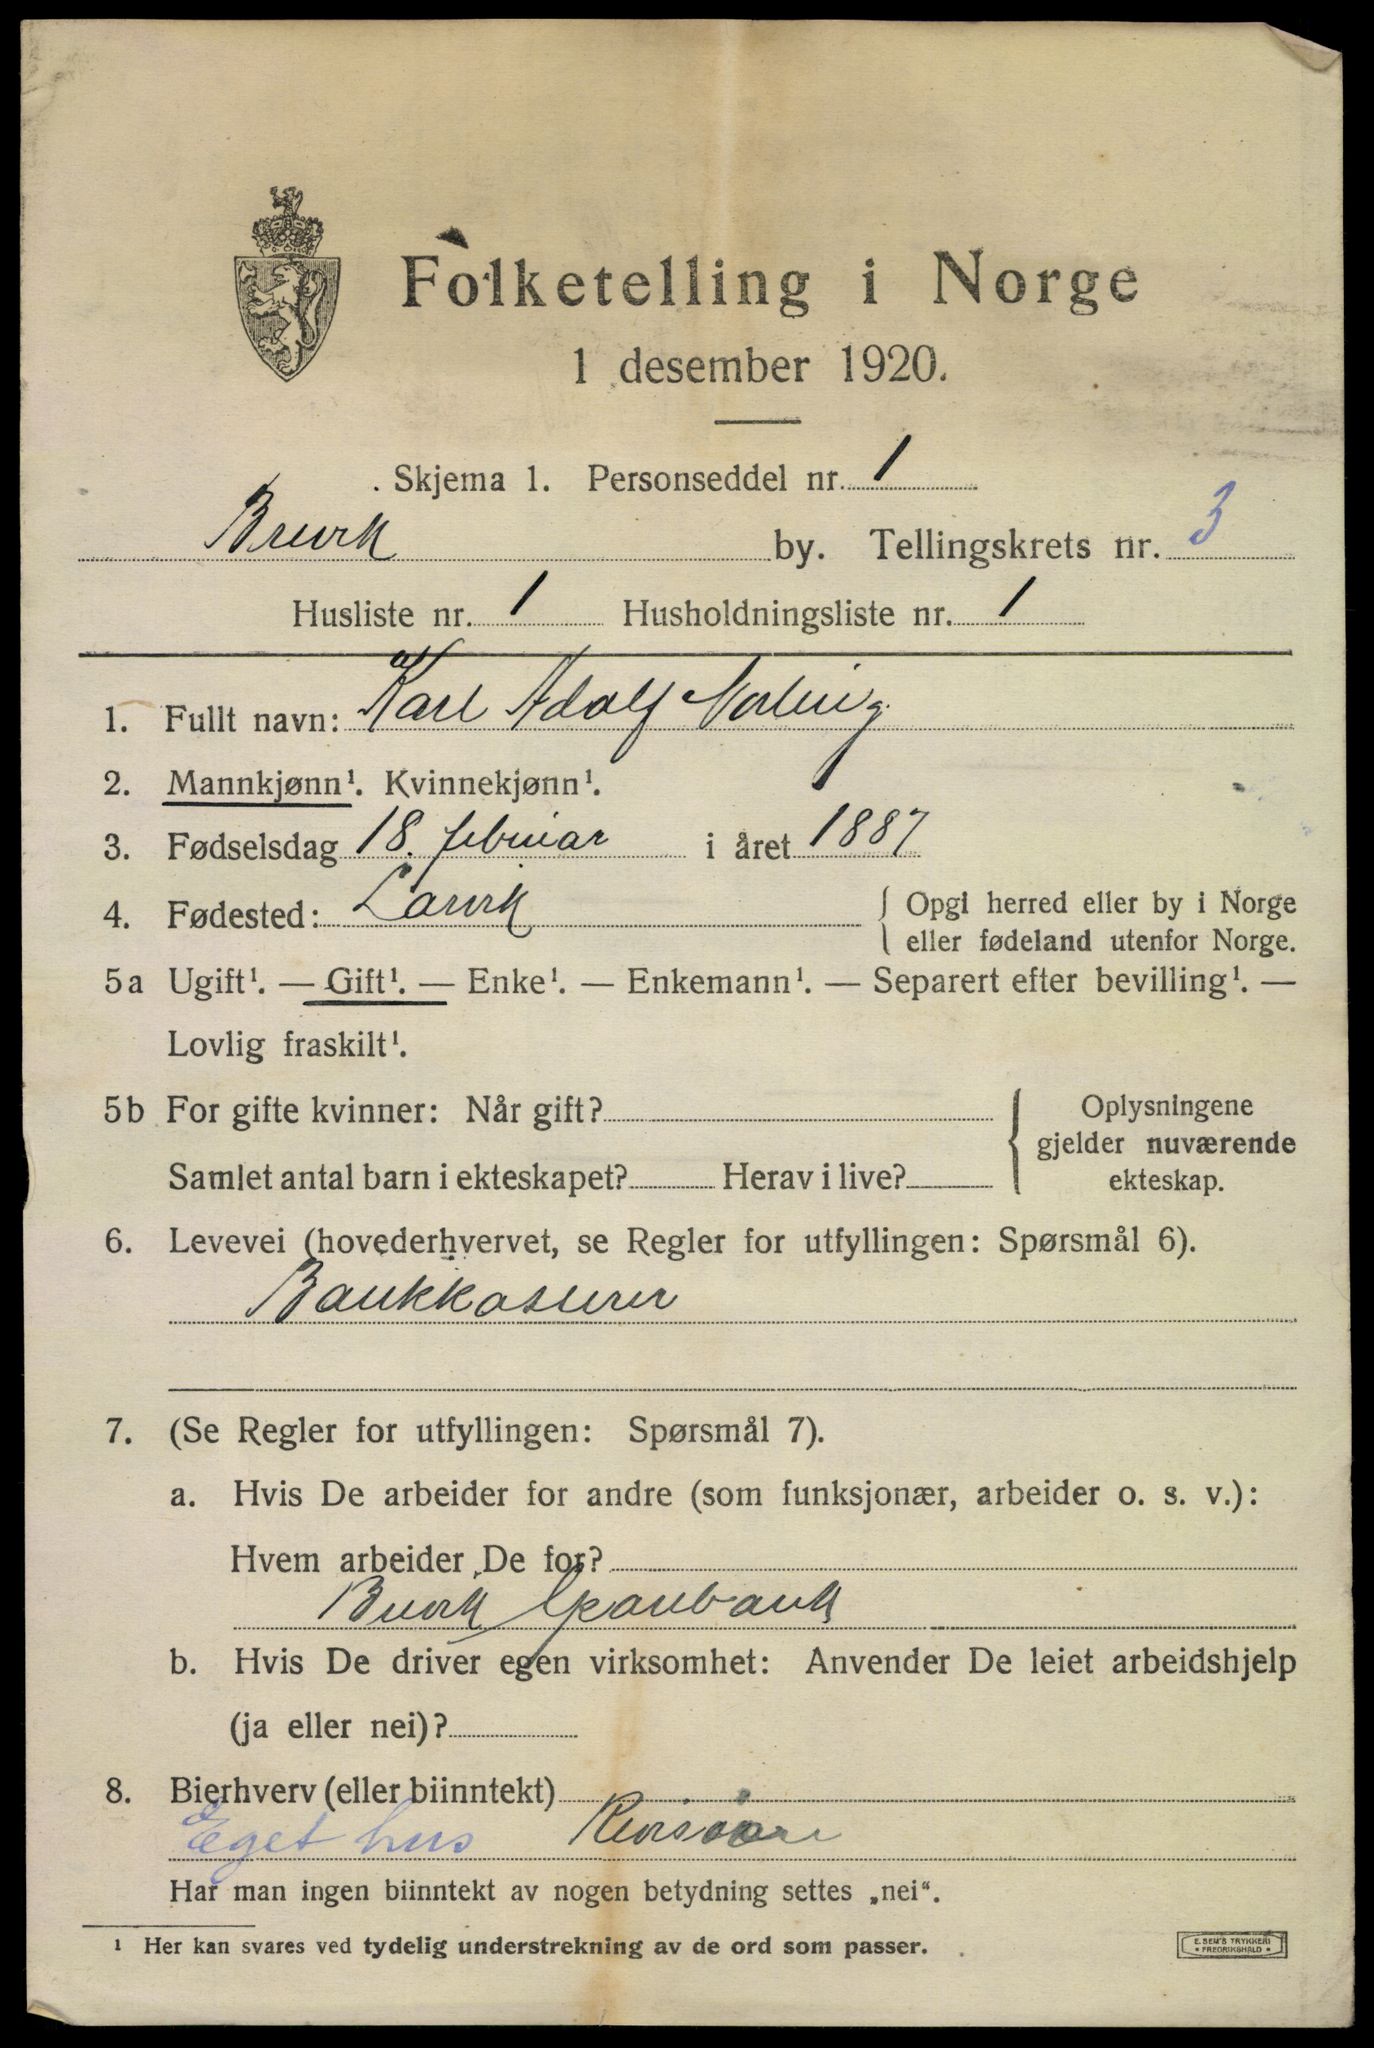 Folketelling i Norge
1 desember 1920.
Skjema 1. Personseddel nr. 1
Brevik by. Tellingskrets nr. 3
Husliste nr. 1 Husholdningsliste nr. 1
1. Fullt navn: Karl Adolf
2. Mannkjønn¹. Kvinnekjønn¹.
3. Fødselsdag 18. februar i året 1887
4. Fødested: Larvik { Opgi herred eller by i Norge
eller fødeland utenfor Norge.
5a Ugift¹. — Gift¹. — Enke¹. — Enkemann¹. — Separert efter bevilling¹. —
Lovlig fraskilt¹.
5b For gifte kvinner: Når gift? { Oplysningene
gjelder nuværende
Samlet antal barn i ekteskapet? Herav i live? ekteskap.
6. Levevei (hovederhvervet, se Regler for utfyllingen: Spørsmål 6).
Bankkasserer
7. (Se Regler for utfyllingen: Spørsmål 7).
a. Hvis De arbeider for andre (som funksjonær, arbeider o. s. v.):
Hvem arbeider De for?
Brevik Sparebank
b. Hvis De driver egen virksomhet: Anvender De leiet arbeidshjelp
(ja eller nei)?
8. Bierhverv (eller biinntekt)
Eget hus Revisor
Har man ingen biinntekt av nogen betydning settes „nei“.
¹ Her kan svares ved tydelig understrekning av de ord som passer.
E. SEM'S TRYKKERI
* FREDRIKSHALD *